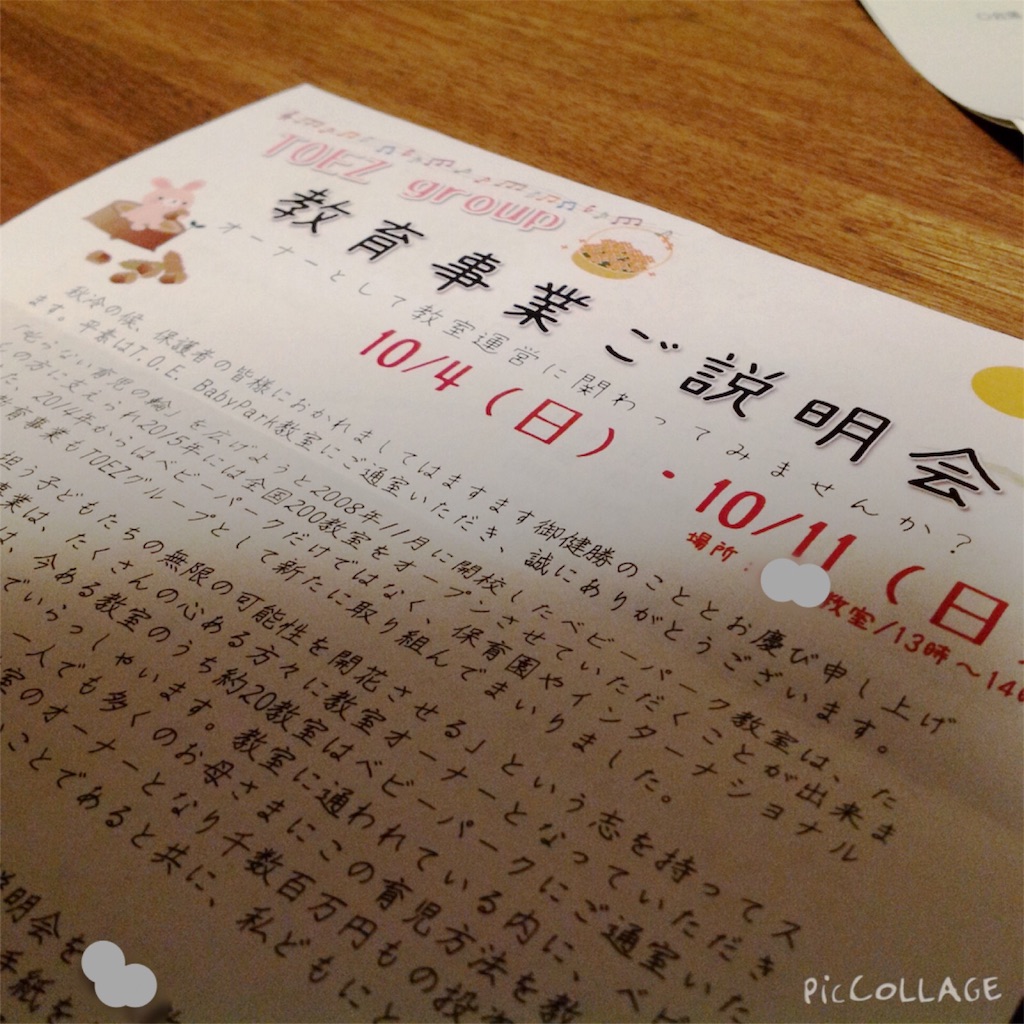 TOEZ group
教育事業ご説明会
オーナーとして教室運営に関わってみませんか?
10/4(日)・10/11(日
場所: 教室/13時~14
秋冷の候、保護者の皆様におかれましてはますます御健勝のこととお慶び申し上げ
ます。平素はT.O.E. BabyPark教室にご通室いただき、誠にありがとうございます。
「叱らない育児の輪」を広げようと2008年11月に開校したベビーパーク教室は、た
くの方に支えられ2015年には全国200教室をオープンさせていただくことが出来ま
た。2014年からはベビーパークだけではなく、保育園やインターナショナル
教育事業もTOEZグループとして新たに取り組んでまいりました。
担う子どもたちの無限の可能性を開花させる」という志を持ってス
事業は、たくさんの心ある方々に教室オーナーとなっていただき
は、今ある教室のうち約20教室はベビーパークにご通室いた
でいらっしゃいます。教室に通われている内に、ベビ
一人でも多くのお母さまにこの育児方法を教
室のオーナーとなり千数百万円もの投
ことであると共に、私どもにと
説明会を
手紙を
PicCOLLAGE